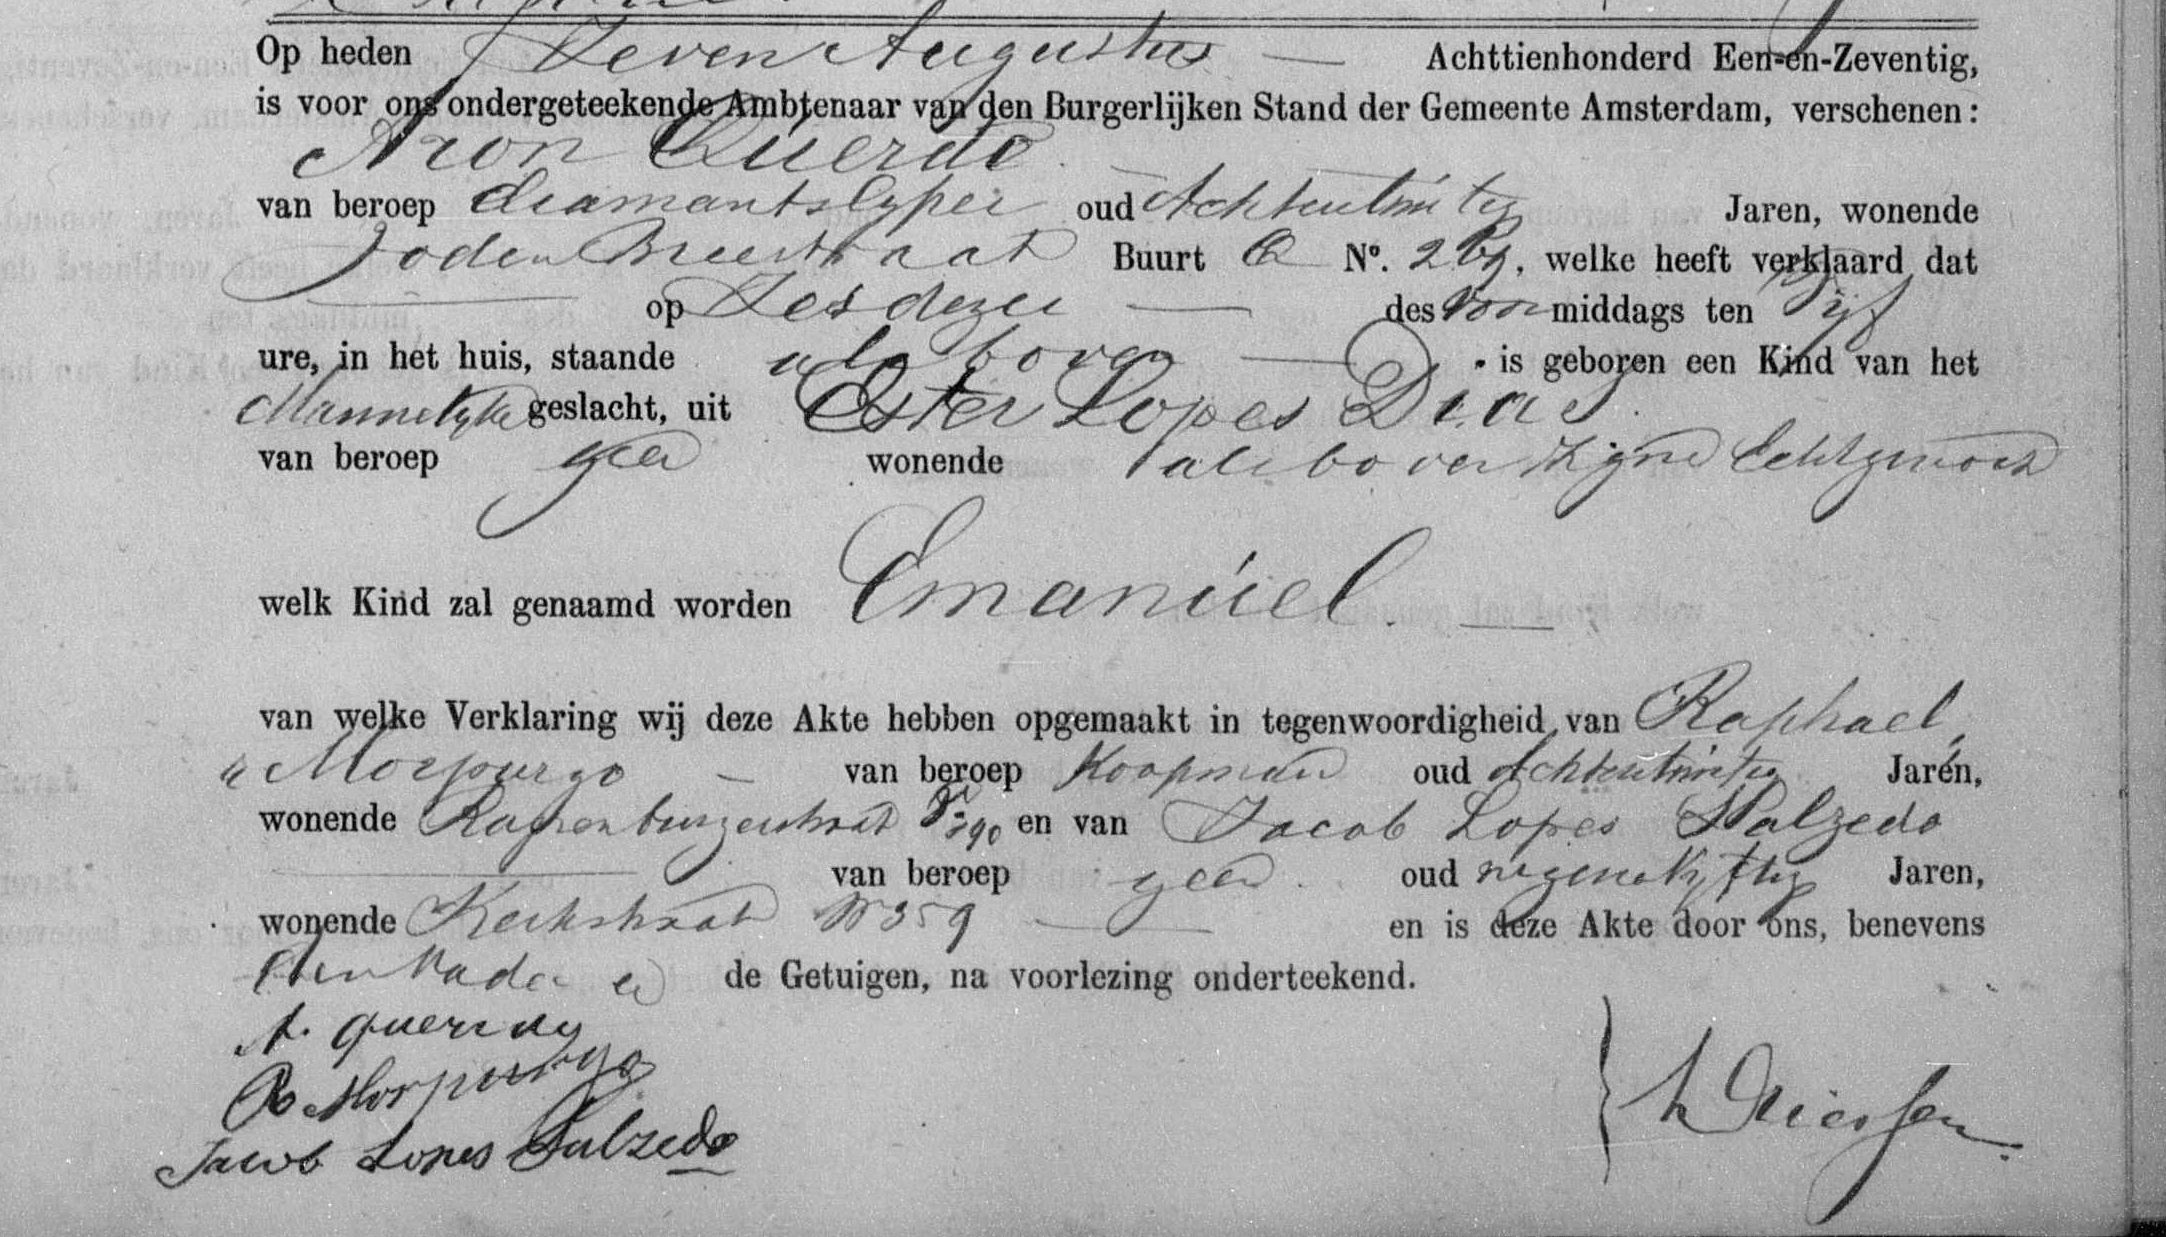 Op heden Zeven Augustus — Achttienhonderd Een-en-Zeventig,
is voor ons ondergeteekende Ambtenaar van den Burgerlijken Stand der Gemeente Amsterdam, verschenen:
Aron Querido
van beroep diamantslyper oud Achtentwintig Jaren, wonende
Joden Breestraat Buurt Q Nº. 2, welke heeft verklaard dat
op Zes dezer — des voormiddags ten Vijf
ure, in het huis, staande als boven — is geboren een Kind van het
Mannelyke geslacht, uit Ester Lopes Dias
van beroep geen wonende als boven zijne Echtgenoote
welk Kind zal genaamd worden Emanúel. —
van welke Verklaring wij deze Akte hebben opgemaakt in tegenwoordigheid van Raphael
Morpurgo — van beroep Koopman oud Achtentwintig Jaren,
wonende Rapenburgerstraat 290 en van Jacob Lopes Salzedo
van beroep geen oud negenenvyftig Jaren,
wonende Kerkstraat 359 — en is deze Akte door ons, benevens
den Vader en de Getuigen, na voorlezing onderteekend.
A. querido
R Morpurgo
Jacob Lopes Salzedo